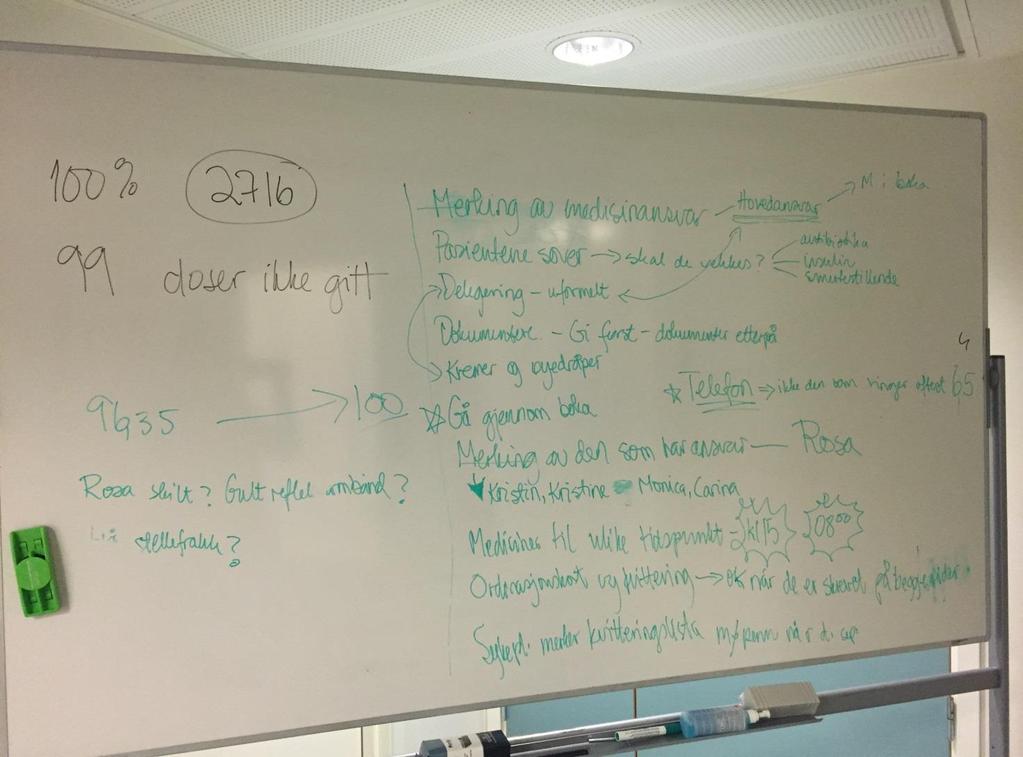 100% 2716
99 doser ikke gitt
9635 → 100
Rosa skilt? Gult reflex armbånd?
stellefrakk?
Merking av medisinansvar – Hovedansvar → M i boka
Pasientene sover → skal de vekkes?
antibiotika
insulin
smertestillende
Delegering – uformelt
Dokumentere – Gi først – dokumenter etterpå
Kremer og øyedråper
Telefon → ikke den som ringer oftest 6,5
Gå gjennom boka
Merking av den som har ansvar — Rosa
Kristin, Kristine Monica, Carina
Medisiner til ulike tidspunkt – kl 15 08⁰⁰
Ordinasjonskort og kvittering → ok når de er skrevet på begge sider
merker kvitteringslista m/penn når